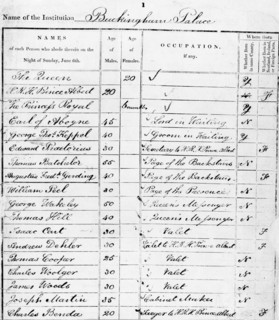 1
Name of the Institution Buckingham Palace
NAMES
of each Person who abode therein on the
Night of Sunday, June 6th.
Age of Males
Age of Females
OCCUPATION,
If any.
Where Born
The Queen 20 Y
H.R.H. Prince Albert 20 F
The Princess Royal Y
Earl of Aboyne 45 Lord in Waiting N
George Keppel 40 Groom in Waiting Y
Edward 30 Secretary to H.R.H. Prince Albert F
Thomas Batchelor 55 Page of the Backstairs N
Augustus Fredk Gerding 40 Page of the Backstairs F
William Seal 20 Page of the Presence N
George Wakeley 50 Queens Messenger N
Thomas Hill 40 Queens Messenger N
Isaac Cart 30 Valet F
Andrew Dehler 30 Valet to H.R.H. Prince Albert F
Thomas Cooper 25 Valet N
Charles Woolger 30 Valet N
James Woods 30 Valet N
Joseph Martin 35 Cabinet Maker N
Charles Benda 20 to H.R.H. Prince Albert F